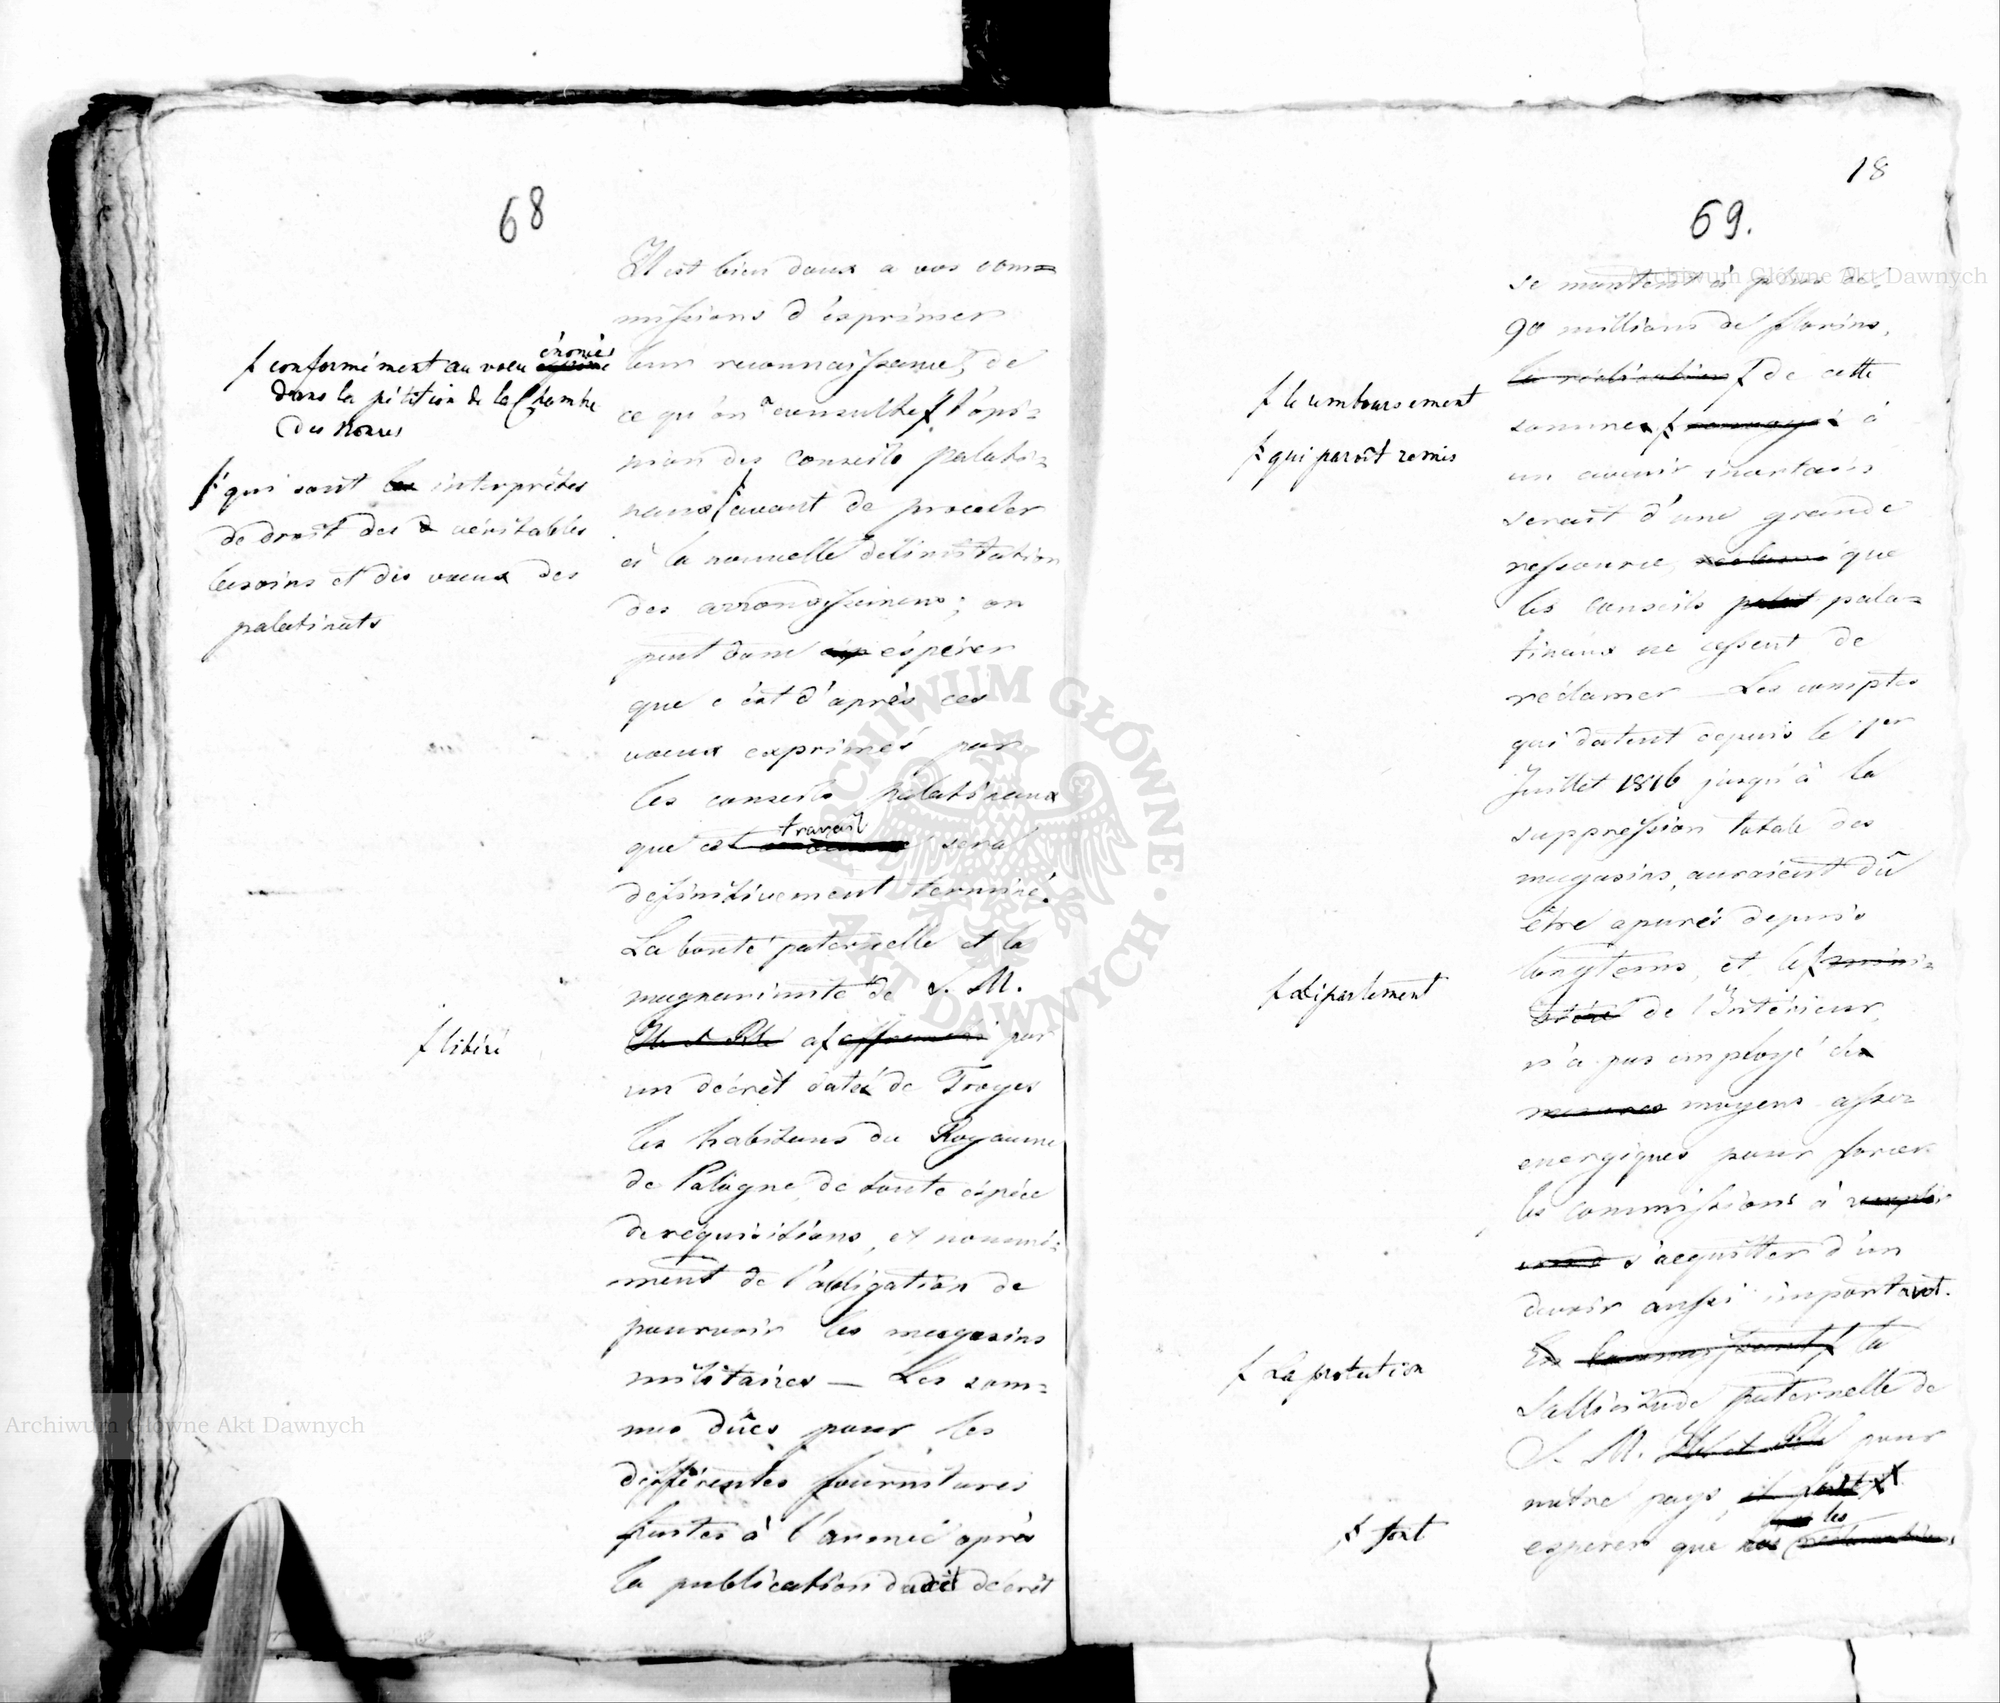 68
Il est bien doux a vos com=
missions d'éxprimer
leur reconnaissance, de
ce qu'on a consulté f l'opi=
nion des conseils palati=
naux f avant de proceder
à la nouvelle délimitation
des arrondissemens; on
peut donc espérer
que c'est d'après ces
voeux exprimés par
les conseils palatinaux
que cet travail sera
definitivement terminé.
La bonté paternelle et la
magnanimité de S. M.
Ile et Rle a f affranchi par
un décrêt daté de Troyes
les habitans du Royaume
de Pologne, de toute espéce
de requisitions, et nommé=
ment de l'obligation de
pourvoir les magasins
militaires — Les som=
mes dûes pour les
différentes fournitures
faites à l'armée après
la publication dudit décrêt
f conformément au voeu énoncé
dans la pétition de la Chambre
des Nonces
f qui sont les interprêtes
de droit des véritables
besoins et des voeux des
palatinats
f libéré
18
69.
se montent à plus de
90 millions de florins,
la réalisation f de cette
somme f à
un avenir incertain
serait d'une grande
ressource, que
les conseils palat pala=
tinaux ne cessent de
réclamer — Les comptes
qui datent depuis le 1er
Juillet 1816 jusqu'à la
suppression totale des
magasins, auraient dû
être apurés depuis
longtems, et le f mini=
stère de l'Intérieur,
n'a pas employé des
mesures moyens assez
energiques pour forcer
les commissions à remplir
s'acquitter d'un
devoir aussi important.
En connaissant f la
sollicitude paternelle de
S. M. Ile et Rle pour
notre pays, il faut f
esperer que nos les réclamations
f le remboursement
f qui paroît remis
f département
f La protection
f font
Archiwum Główne Akt Dawnych
Archiwum Główne Akt Dawnych
ARCHIWUM GŁÓWNE AKT DAWNYCH